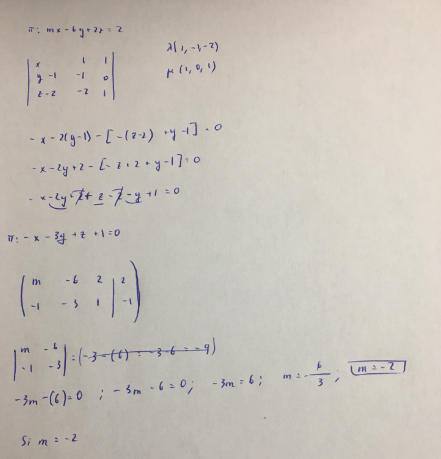 π: mx - 6y + 2z = 2
| x 1 1 | λ(1, -1, -2)
| y-1 -1 0 | μ(1, 0, 1)
| z-2 -2 1 |
- x - 2(y-1) - [-(z-2) + y-1] = 0
-x - 2y + 2 - [-z + 2 + y - 1] = 0
- x - 2y + 2 + z - 2 - y + 1 = 0
π: - x - 3y + z + 1 = 0
( m -6 2 | 2 )
( -1 -3 1 | -1 )
| m -6 |
| -1 -3 | = (-3 - (6) = -3 - 6 = -9)
-3m - (6) = 0 ; -3m - 6 = 0; -3m = 6; m = -6/3; m = -2
Si m = -2